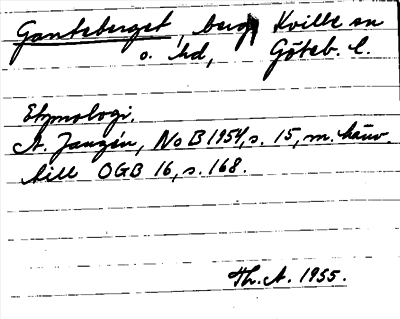 Ganteberget, berg, Kville sn
o. hd, Göteb. l.
Etymologi.
A. Janzén, NoB 1954, s. 15, m. hänv.
till OGB 16, s. 168.
Th. A. 1955.